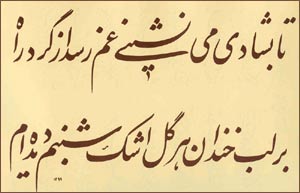 تا بشادی می نشینی غم رسد از گرد راه
بر لب خندان هر گل اشک شبنم دیده‌ام